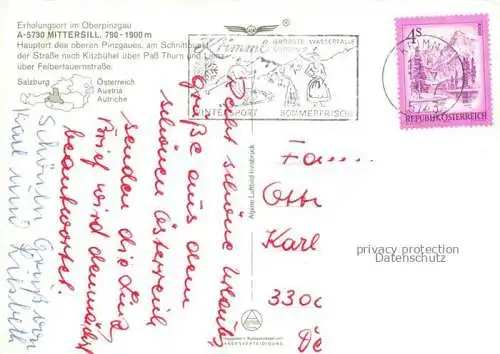 Erholungsort im Oberpinzgau
A-5730 MITTERSILL, 790 - 1900 m
Hauptort des oberen Pinzgaues, am Schnittpunkt
der Straße nach Kitzbühel über Paß Thurn und Lienz
über Felbertauernstraße.
Salzburg
Österreich
Austria
Autriche
Krimml
GRÖSSTE WASSERFÄLLE
EUROPAS
WINTERSPORT
SOMMERFRISCHE
4 S
REPUBLIK ÖSTERREICH
Recht schöne Urlaubs
grüße aus dem
schönen Österreich
senden die
Brief wird demnächst
beantwortet.
Schönen Gruß von
Karl und Lisbeth
Alpine Luftbild Innsbruck
Fa
Otto
Karl
330
De
privacy protection
Datenschutz